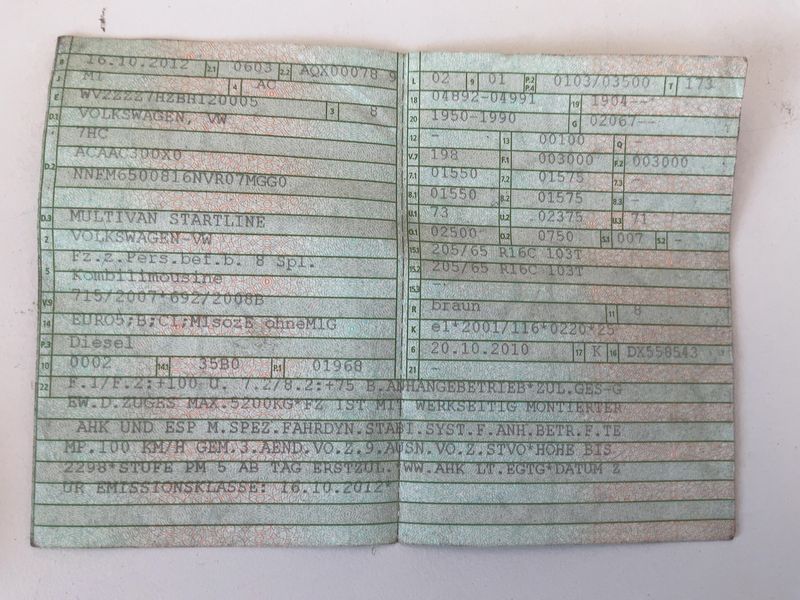 B 16.10.2012 2.1 0603 2.2 AQX00078 9
J M1 4 AC
E WV2ZZZ7HZBH120005 3 8
D.1 VOLKSWAGEN, VW
7HC
D.2 ACAAC300X0
NNFM6500816NVR07MGG0
D.3 MULTIVAN STARTLINE
2 VOLKSWAGEN-VW
5 Fz.z.Pers.bef.b. 8 Spl.
Kombilimousine
V.9 715/2007*692/2008B
14 EURO5;B;CI;M1sozE ohneM1G
P.3 Diesel
10 0002 14.1 35B0 P.1 01968
L 02 9 01 P.2 P.4 0103/03500 T 173
18 04892-04991 19 1904--
20 1950-1990 G 02067--
12 - 13 00100 Q -
V.7 198 F.1 003000 F.2 003000
7.1 01550 7.2 01575 7.3 -
8.1 01550 8.2 01575 8.3 -
U.1 73 U.2 02375 U.3 71
O.1 02500 O.2 0750 S.1 007 S.2 -
15.1 205/65 R16C 103T
15.2 205/65 R16C 103T
15.3 -
R braun 11 8
K e1*2001/116*0220*25
6 20.10.2010 17 K 16 DX558543
21 -
22 F.1/F.2:+100 U. 7.2/8.2:+75 B.ANHÄNGEBETRIEB*ZUL.GES-G
EW.D.ZUGES MAX.5200KG*FZ IST MIT WERKSEITIG MONTIERTER
AHK UND ESP M.SPEZ.FAHRDYN.STABI.SYST.F.ANH.BETR.F.TE
MP.100 KM/H GEM.3.AEND.VO.Z.9.AUSN.VO.Z.STVO*HÖHE BIS
2298*STUFE PM 5 AB TAG ERSTZUL.*WW.AHK LT.EGTG*DATUM Z
UR EMISSIONSKLASSE: 16.10.2012*